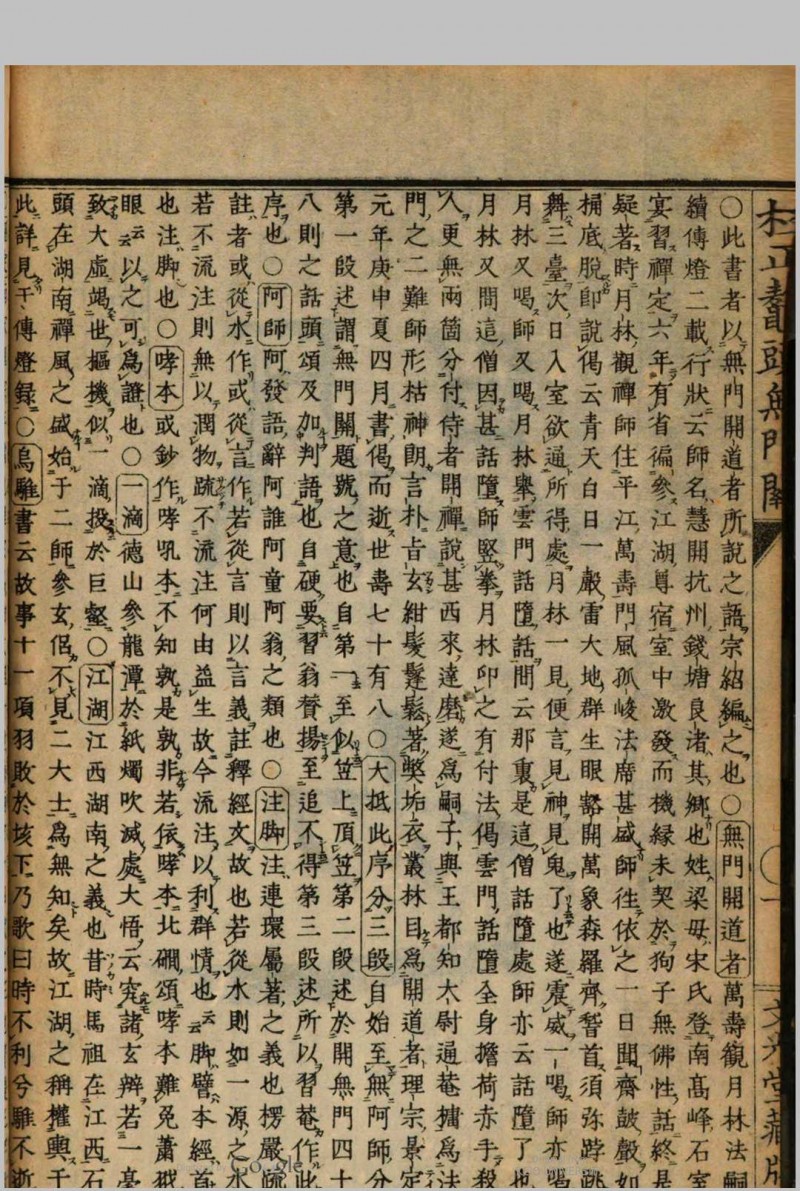 頭無門關
○此書者以無門開道者所說之語宗紹編之也○無門開道者萬壽觀月林法嗣
續傳燈二載行狀云師名慧開杭州錢塘良渚其鄉也姓梁母宋氏登南高峰石室
宴習禪定六年有省徧參江湖尊宿室中激發而機緣未契於狗子無佛性話終是
疑著時月林觀禪師住平江萬壽門風孤峻法席甚盛師往依之一日聞齋鼓聲如
桶底脫卽說偈云青天白日一聲雷大地群生眼豁開萬象森羅齊稽首須弥𨁝跳
舞三臺次日入室欲通所得處月林一見便言見神見鬼了也遂震威一喝師亦喝
月林又喝師又喝月林舉雲門話墮話問云那裏是這僧話墮處師亦云話墮了也
月林又問這僧因甚話墮師竪拳月林卯之有付法偈雲門話墮全身擔荷赤手殺
人更無兩箇分付侍者開禪說甚西來達磨遂爲嗣子與王都知太尉通菴㨾爲法
門之二難師形枯神朗言朴旨玄紺髮鬔鬆著弊垢衣叢林目爲開道者理宗景定
元年庚申夏四月書偈而逝世壽七十有八○大抵此序分三段自始至無阿師分
第一段述謂無門關題號之意也自第一至似笠上頂笠第二段述於開無門四十
八則之話頭頌及加判語也自硬要習翁賛揚至追不得第三段述所以習菴作此
序也○阿師阿發語辭阿誰阿童阿翁之類也○注脚注連環屬著之義也楞嚴疏
註者或從水作或從言作若從言則以言義註釋經文故也若從水則如一源之水
若不流注則無以潤物疏不流注何由益生故今流注以利群情也云云脚譬本經首
也注脚也○哮本或鈔作哮吼本不知孰是孰非若依哮本北磵頌哮本難免蕭戒
眼云云以之可爲證也○一滴德山參龍潭於紙燭吹滅處大悟云窮諸玄辯若一毫
致大虛竭世樞機似一滴投於巨壑○江湖江西湖南之義也昔時馬祖在江西石
頭在湖南禪風之盛始于二師參玄侶不見二大士爲無知矣故江湖之稱權輿于
此詳見于傳燈録○烏騅書云故事十一項羽敗於垓下乃歌曰時不利兮騅不逝